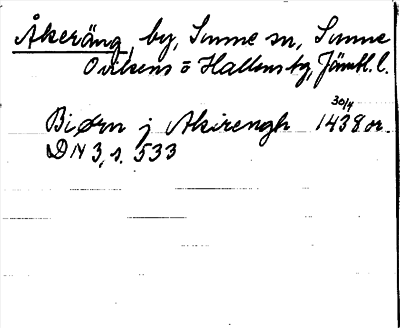 Åkeräng, by, Sunne sn, Sunne
Ovikens o Hallens tg, Jämtl. l.
Biørn j Akirengh 30/4 1438 or.
DN 3, s. 533